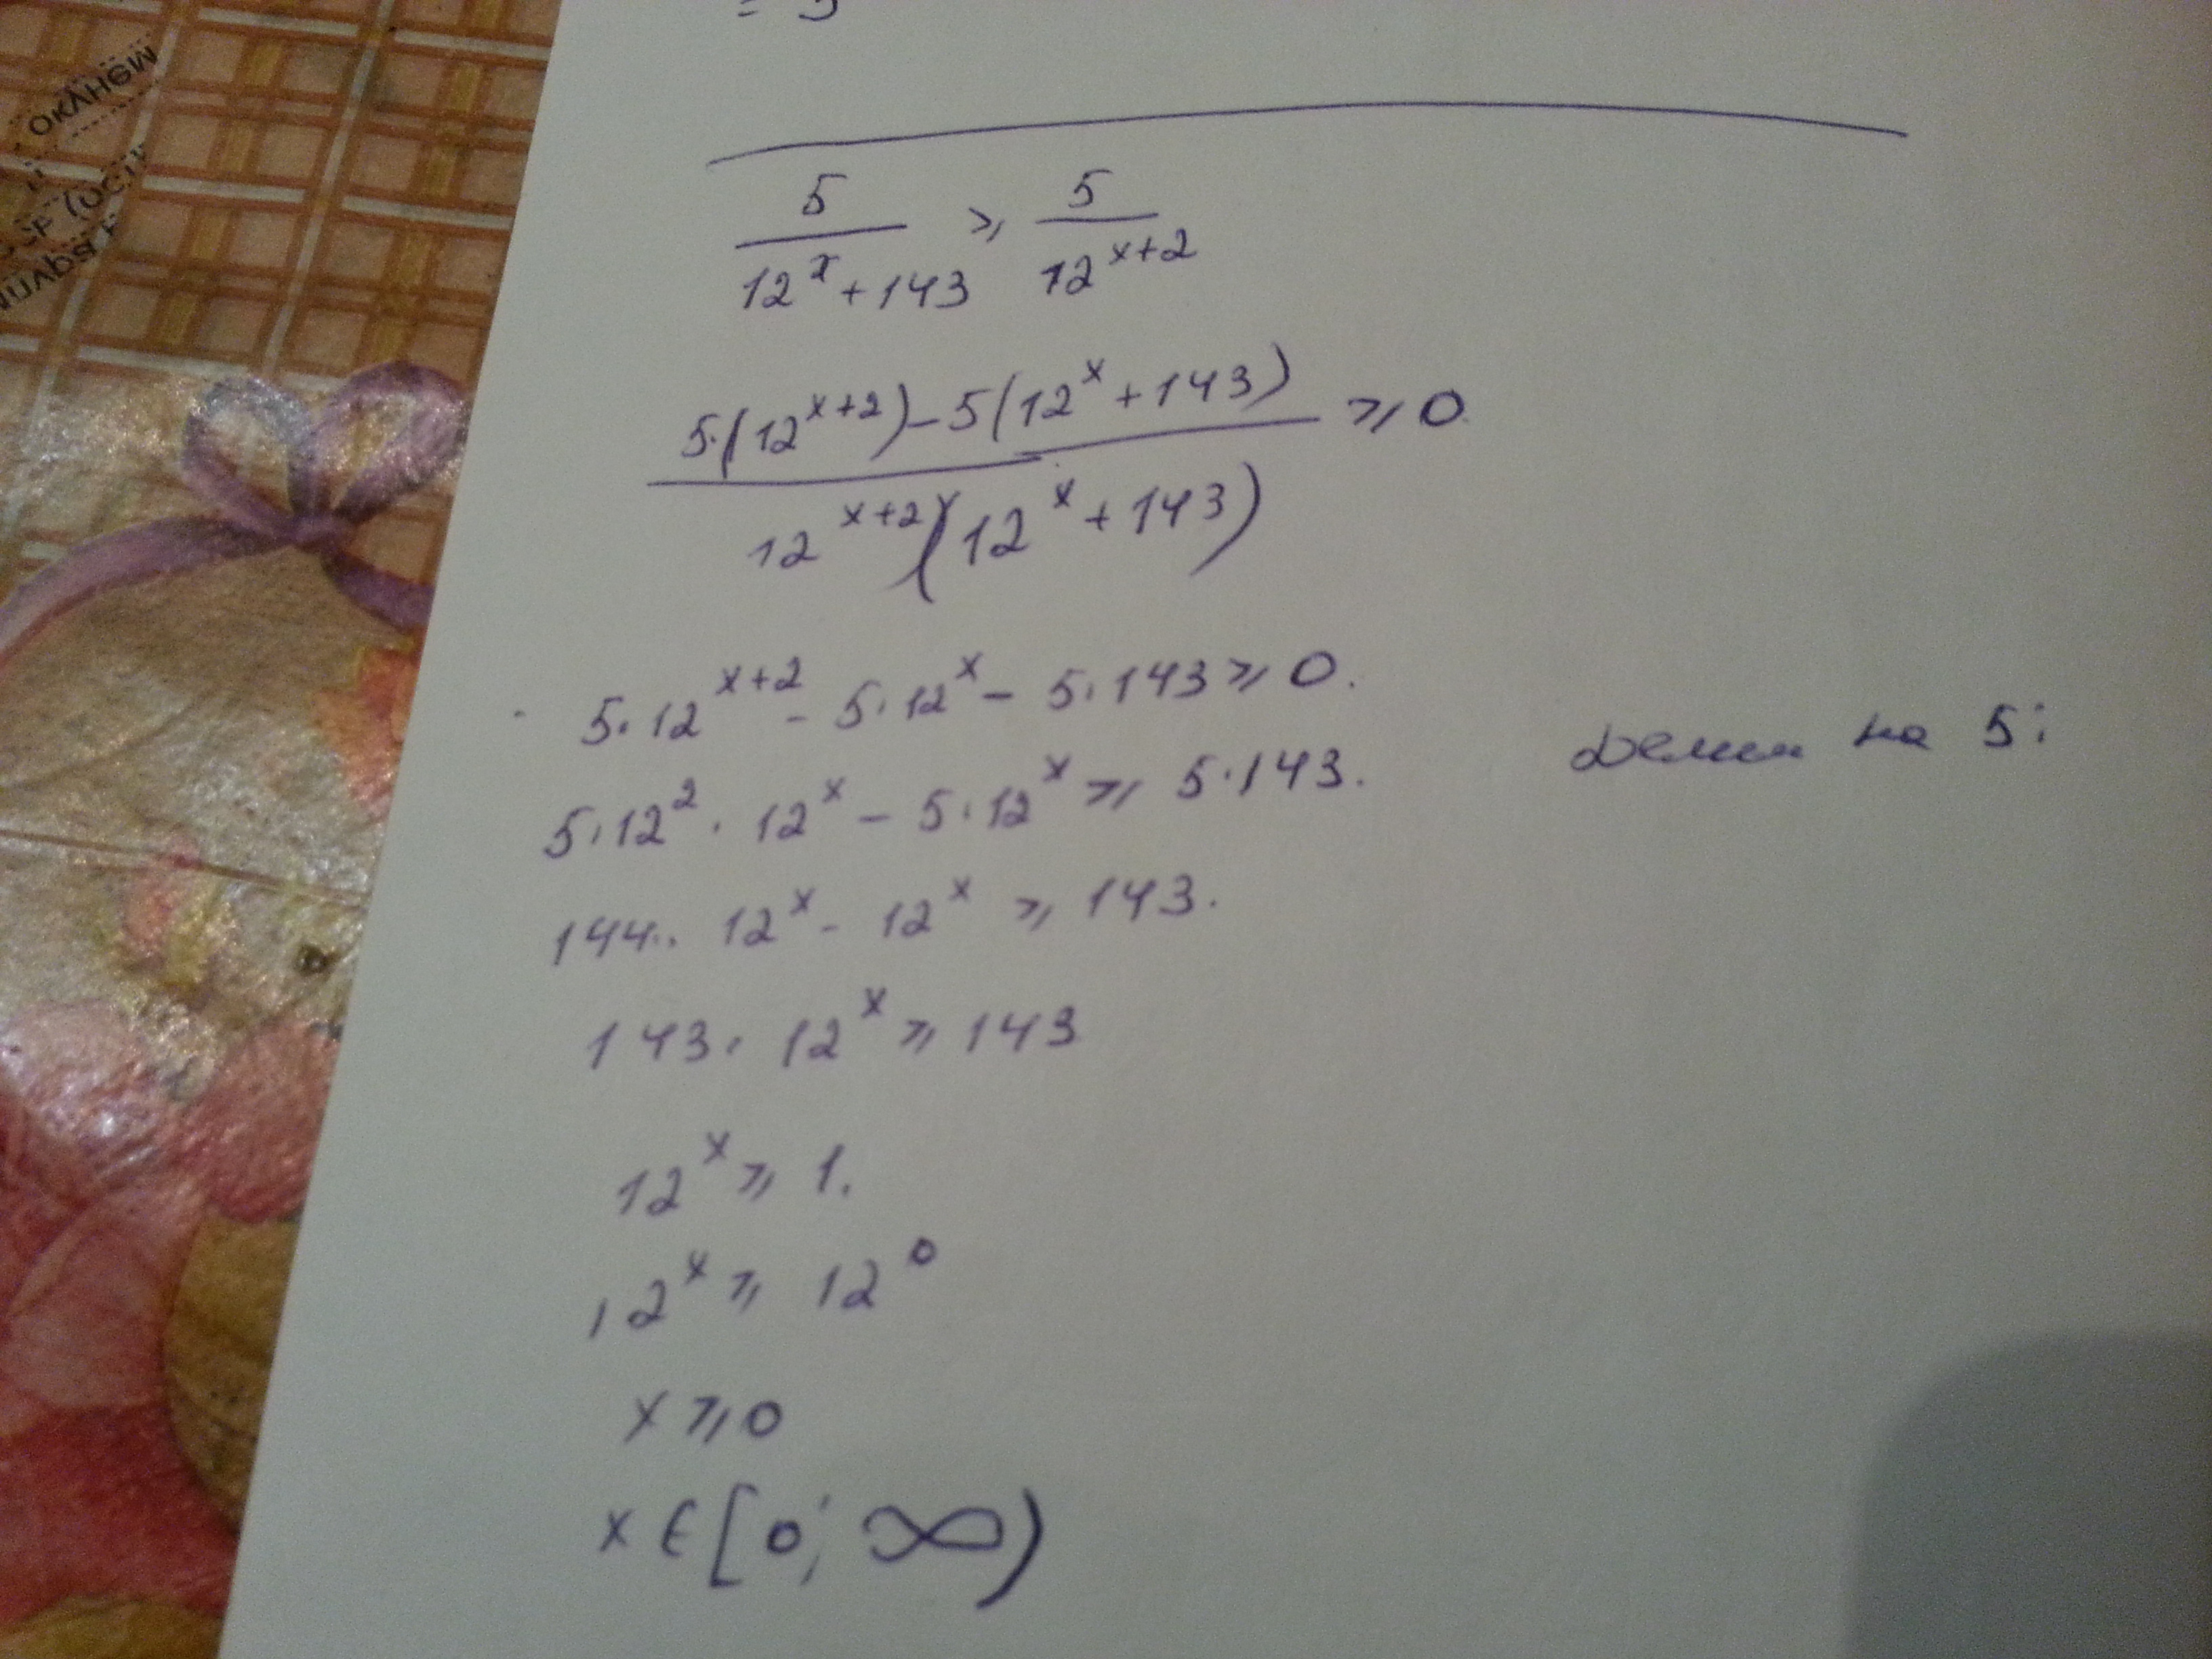 = 5
5/(12^x + 143) ⩾ 5/12^(x+2)
(5·(12^(x+2)) - 5(12^x + 143))/(12^(x+2)(12^x + 143)) ⩾ 0
5·12^(x+2) - 5·12^x - 5·143 ⩾ 0.
5·12^2 · 12^x - 5·12^x ⩾ 5·143. Делим на 5:
144· 12^x - 12^x ⩾ 143.
143· 12^x ⩾ 143
12^x ⩾ 1.
12^x ⩾ 12^0
x ⩾ 0
x ∈ [0; ∞)